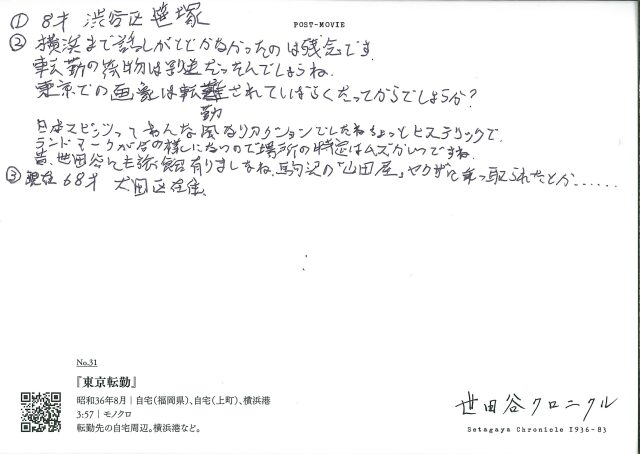 POST-MOVIE
① 8才 渋谷区笹塚
② 横浜まで話しがとどかなかったのは残念です
転勤の荷物は別送だったんでしょうね
東京での画像は転勤されてしばらくたってからでしょうか?
日本スピッツってあんな風なリアクションでしたねちょっとヒステリックで、
ランドマークが今の様にないので場所の特定はムズかしいですね
昔、世田谷にも旅館有りましたね、駒沢の「山田屋」ヤクザに乗っ取られたとか......
③ 現在 68才 大田区在住
No.31
『東京転勤』
昭和36年8月|自宅(福岡県)、自宅(上町)、横浜港
3:57|モノクロ
転勤先の自宅周辺。横浜港など。
世田谷クロニクル
Setagaya Chronicle 1936-83